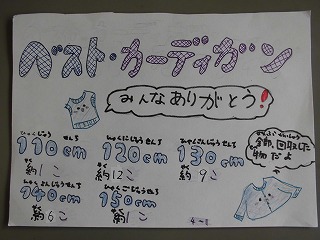 ベスト・カーディガン
みんなありがとう!
ひゃくじゅう せんち
110cm
約1こ
ひゃくにじゅう せんち
120cm
約12こ
ひゃくさんじゅう せんち
130cm
約9こ
ぜんぶ かいしゅう
全部、回収した
物だよ
ひゃくよんじゅう せんち
140cm
約6こ
ひゃくごじゅう せんち
150cm
約1こ